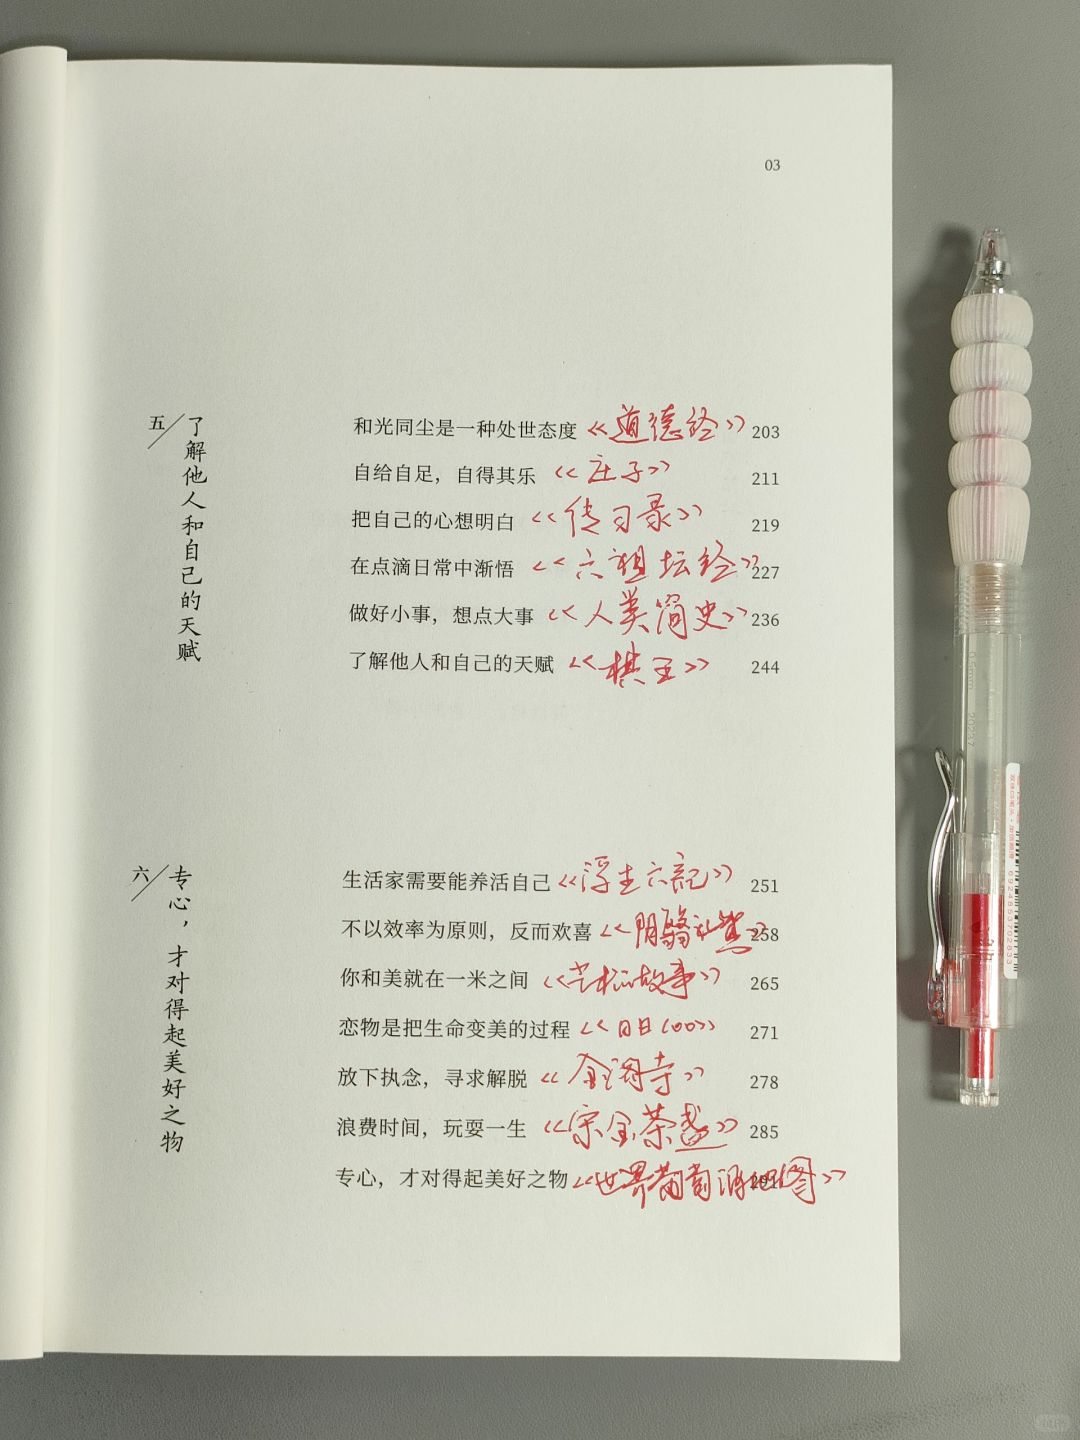 03
五
了解他人和自己的天赋
和光同尘是一种处世态度《道德经》 203
自给自足，自得其乐《庄子》 211
把自己的心想明白《传习录》 219
在点滴日常中渐悟《六祖坛经》 227
做好小事，想点大事《人类简史》 236
了解他人和自己的天赋《棋王》 244
六
专心，才对得起美好之物
生活家需要能养活自己《浮生六記》 251
不以效率为原则，反而欢喜 258
你和美就在一米之间《艺术的故事》 265
恋物是把生命变美的过程《日日100》 271
放下执念，寻求解脱《金阁寺》 278
浪费时间，玩耍一生《宗全茶盏》 285
专心，才对得起美好之物《世界葡萄酒地图》 291
0.5mm
6924853702833